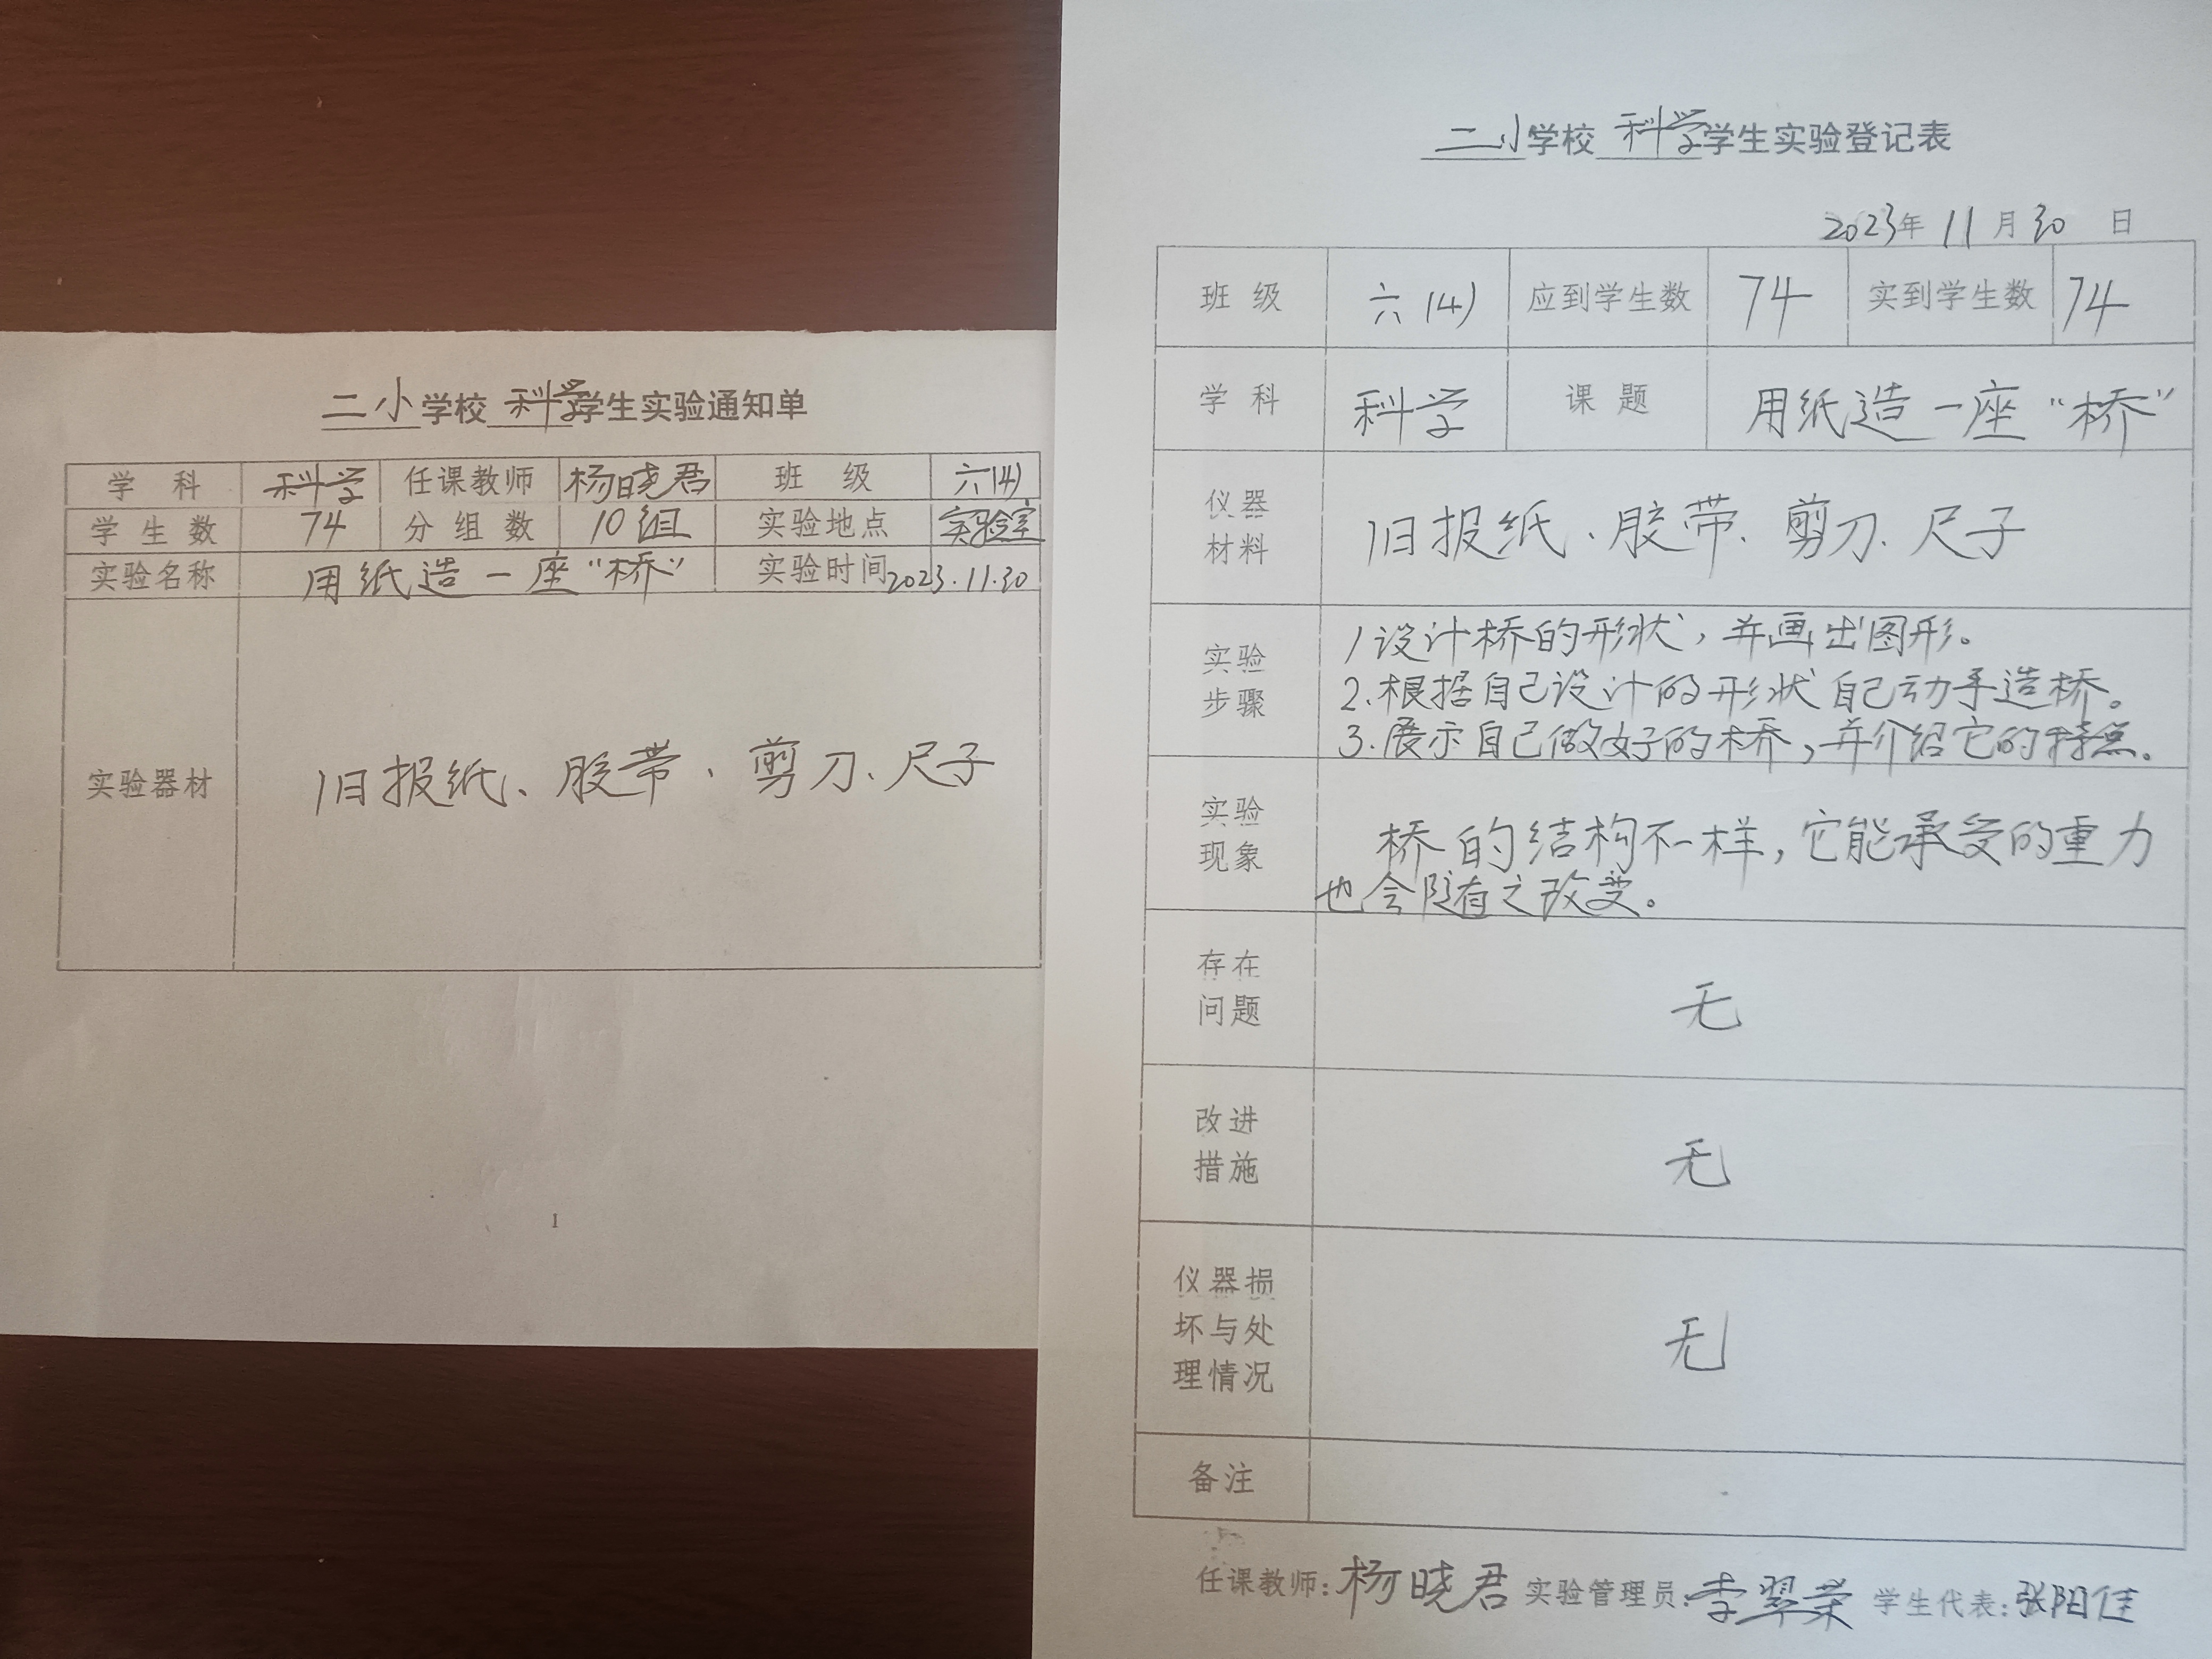 二小学校 科学学生实验通知单
学 科 科学 任课教师 杨晓君 班 级 六(4)
学生数 74 分组数 10组 实验地点 实验室
实验名称 用纸造一座“桥” 实验时间 2023.11.30
实验器材 旧报纸、胶带、剪刀、尺子
1
二小学校 科学学生实验登记表
2023年 11月30 日
班 级 六(4) 应到学生数 74 实到学生数 74
学 科 科学 课 题 用纸造一座“桥”
仪器
材料
旧报纸、胶带、剪刀、尺子
实验
步骤
1设计桥的形状，并画出图形。
2.根据自己设计的形状自己动手造桥。
3.展示自己做好的桥，并介绍它的特点。
实验
现象
桥的结构不一样，它能承受的重力
也会随之改变。
存在
问题
无
改进
措施
无
仪器损
坏与处
理情况
无
备注
任课教师：杨晓君 实验管理员：李翠荣 学生代表：张阳佳